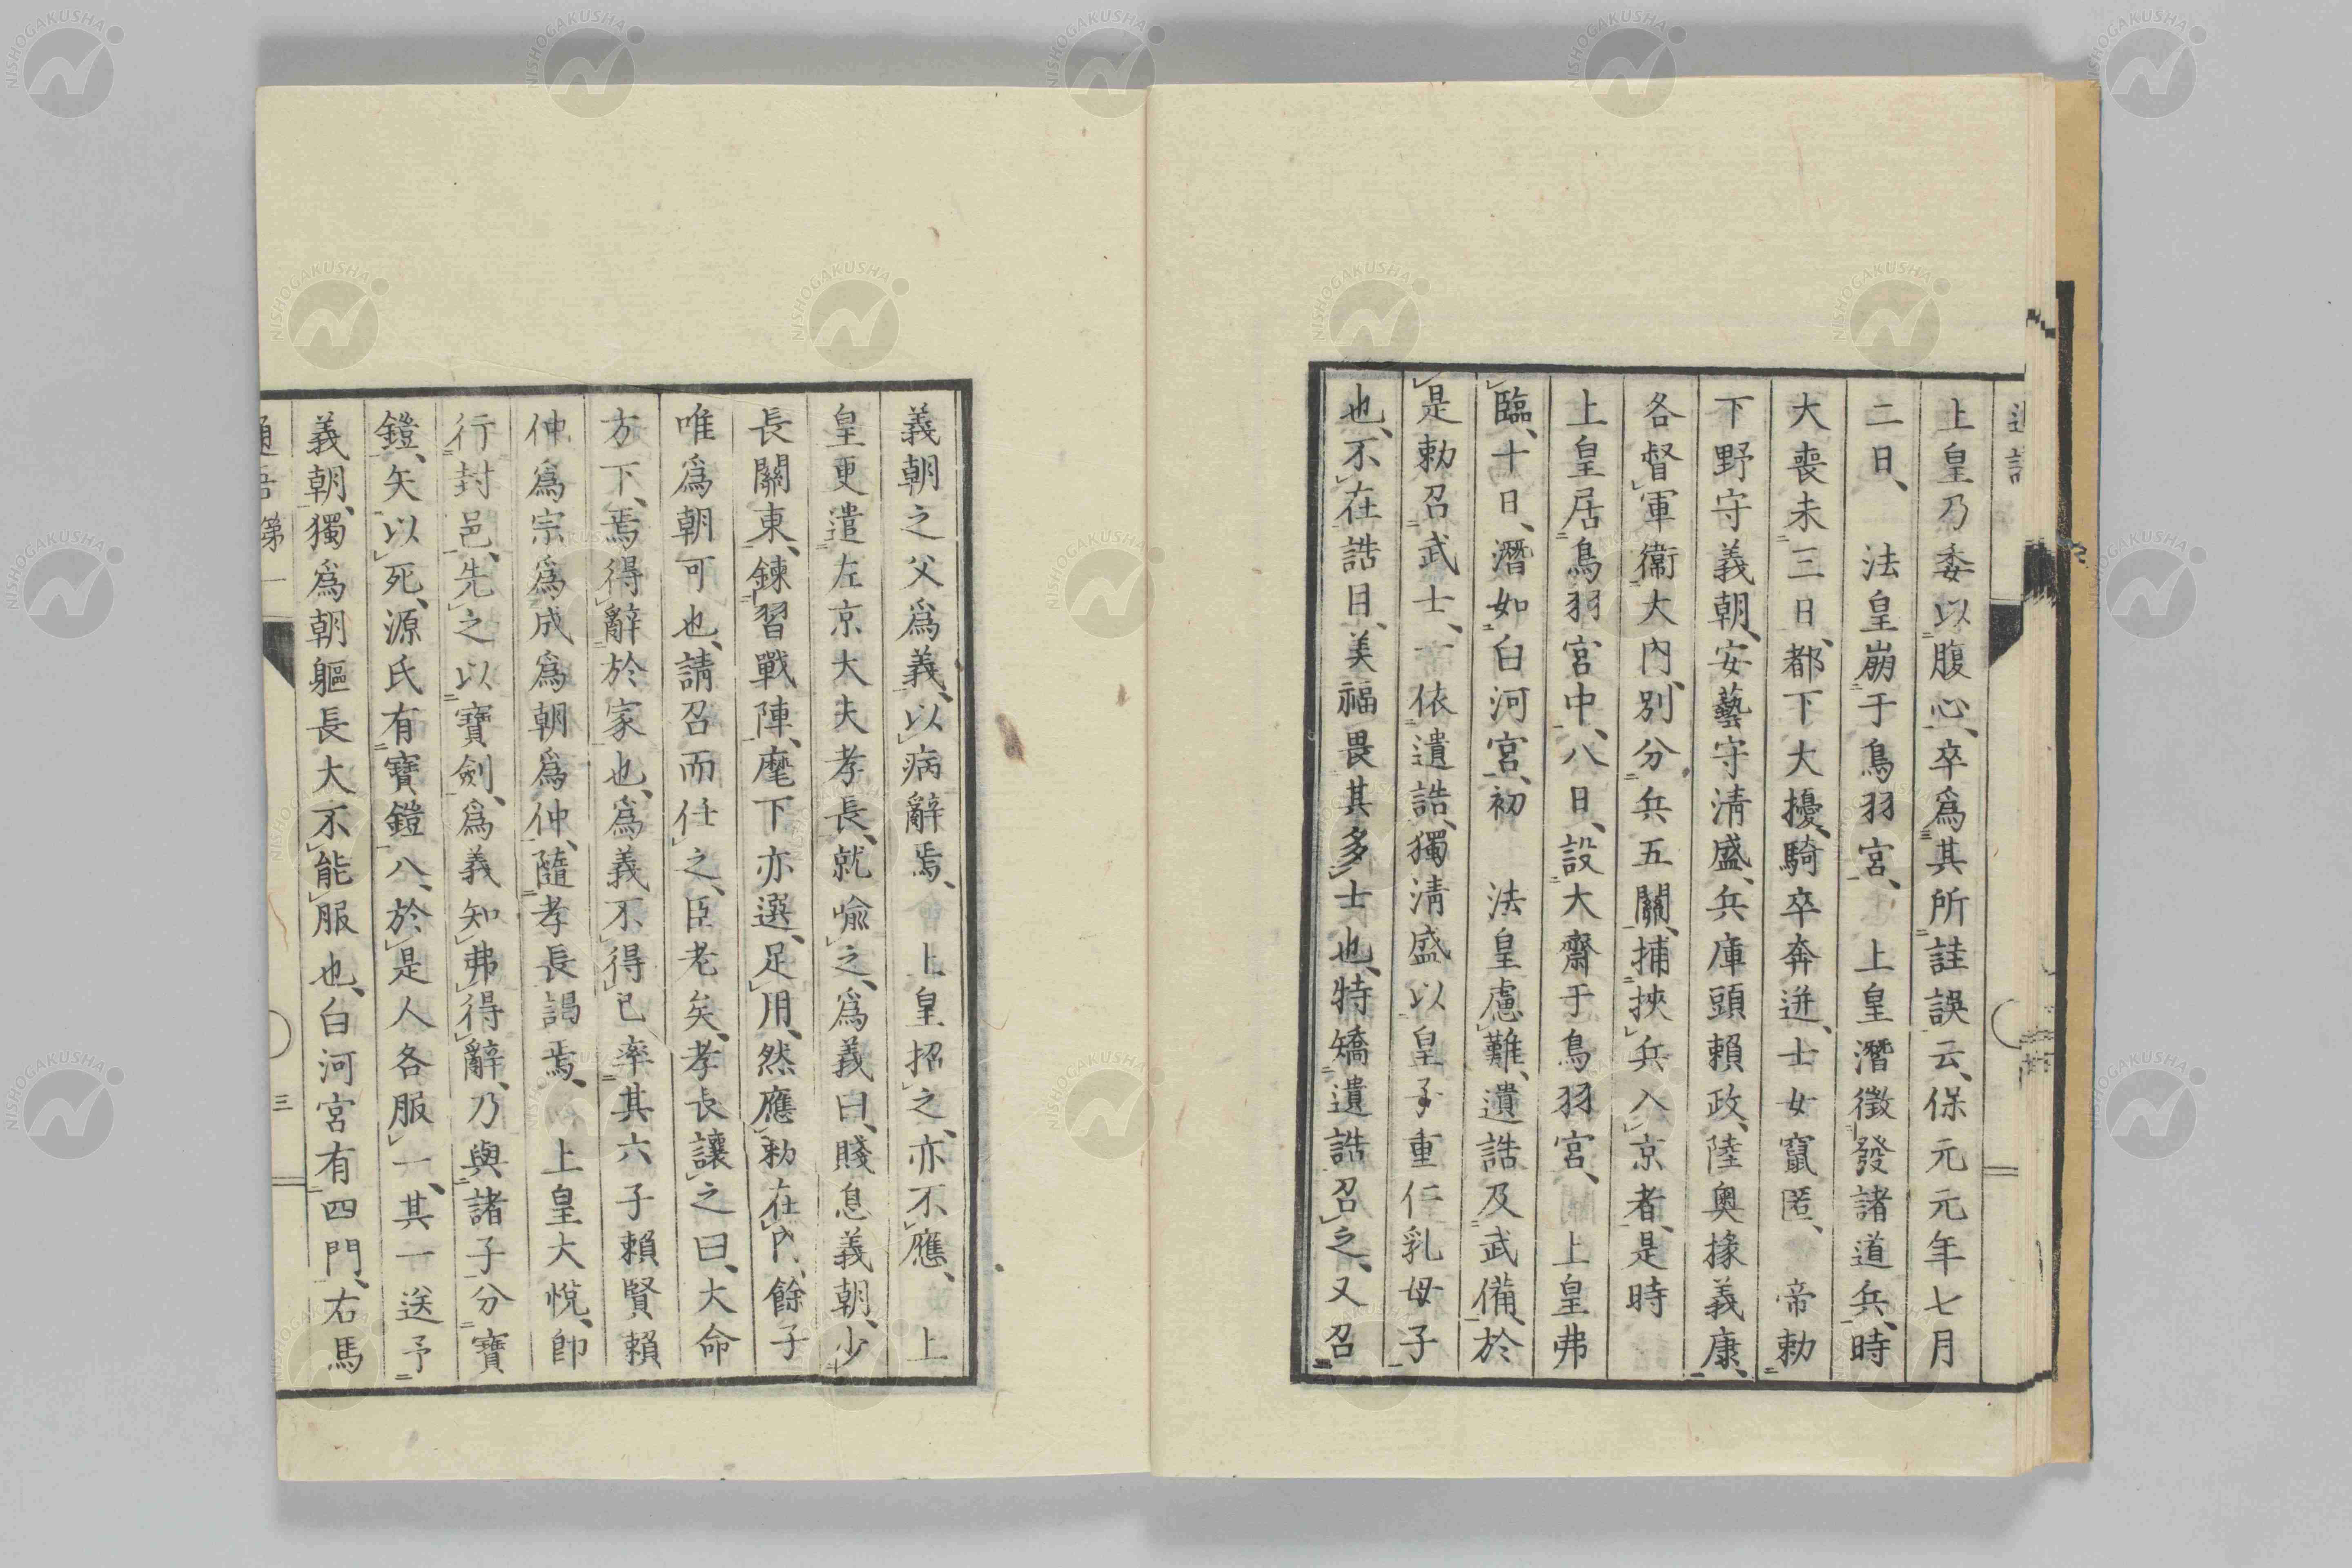 上皇乃委以腹心、卒爲其所詿誤云、保元元年七月
二日、法皇崩于鳥羽宮、上皇潛徵發諸道兵、時
大喪未三日、都下大擾、騎卒奔迸、士女竄匿、帝勅
下野守義朝、安藝守淸盛、兵庫頭賴政、陸奧掾義康、
各督軍衞大內、別分兵五關、捕挾兵入京者、是時
上皇居鳥羽宮中、八日、設大齋于鳥羽宮、上皇弗
臨、十日、潛如白河宮、初法皇慮難、遺誥及武備、於
是勅召武士、一依遺誥、獨淸盛以皇子重仁乳母子
也、不在誥目、美福畏其多士也、特矯遺誥召之、又召
義朝之父爲義、以病辭焉、上皇招之、亦不應、上
皇更遣左京大夫孝長、就喩之、爲義曰、賤息義朝、少
長關東、鍊習戰陣、麾下亦選、足用、然應勅在內、餘子
唯爲朝可也、請召而任之、臣老矣、孝長讓之曰、大命
方下、焉得辭於家也、爲義不得已率其六子賴賢賴
仲爲宗爲成爲朝爲仲、隨孝長謁焉、上皇大悅、卽
行封邑、先之以寶劍、爲義知弗得辭、乃與諸子分寶
鎧、矢以死、源氏有寶鎧八、於是人各服一、其一送予
義朝、獨爲朝軀長大不能服也、白河宮有四門、右馬
通語第一
三
NISHOGAKUSHA